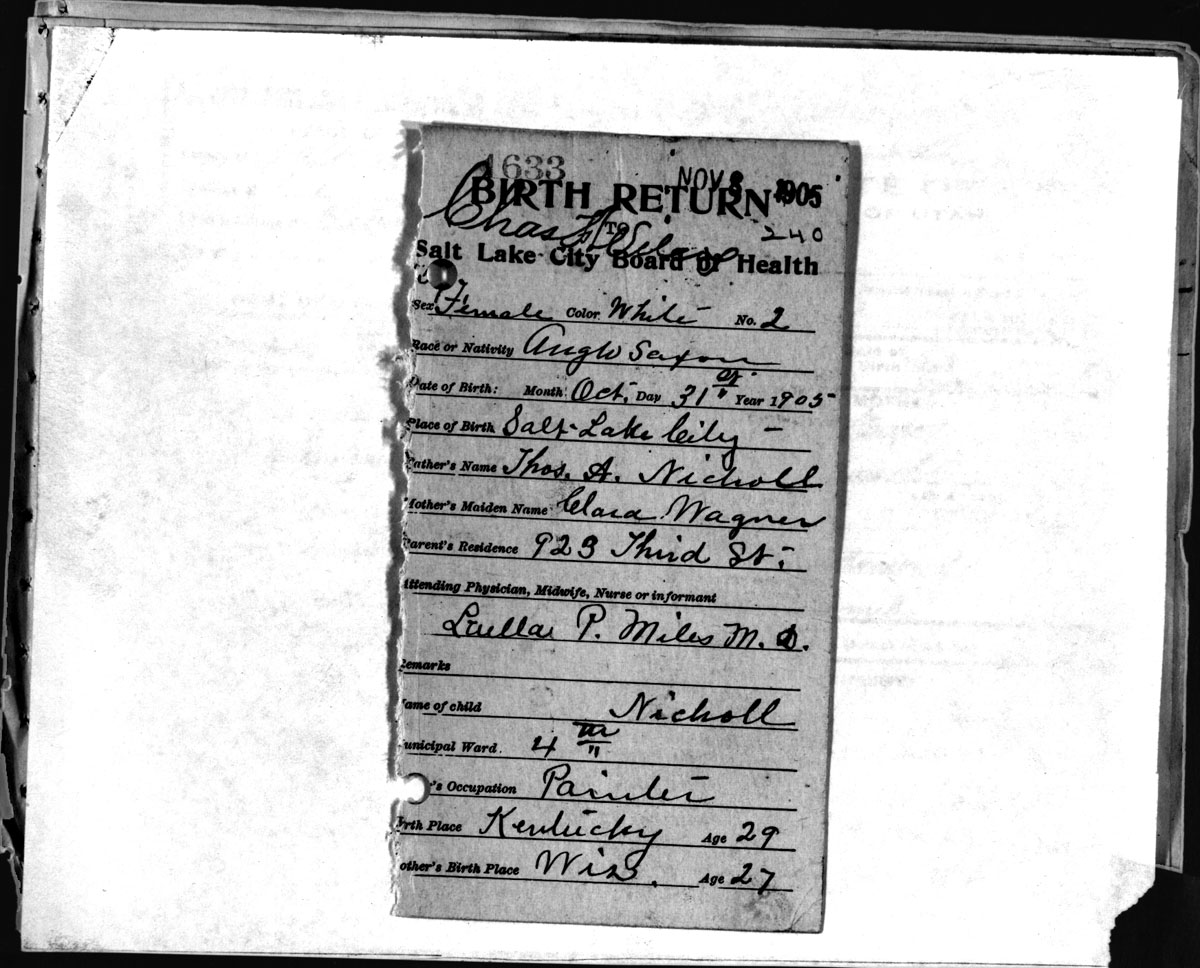 1633
NOV 8 1905
BIRTH RETURN
TO
240
Chas
Salt Lake City Board of Health
Sex Female Color White No. 2
Race or Nativity Anglo Saxon
Date of Birth: Month Oct. Day 31st Year 1905
Place of Birth Salt Lake City
Father's Name Thos. A. Nicholl
Mother's Maiden Name Clara Wagner
Parent's Residence 923 Third St.
Attending Physician, Midwife, Nurse or informant
Luella P. Miles M.D.
Remarks
ame of child Nicholl
unicipal Ward. 4th
's Occupation Painter
rth Place Kentucky Age 29
other's Birth Place Wis. Age 27